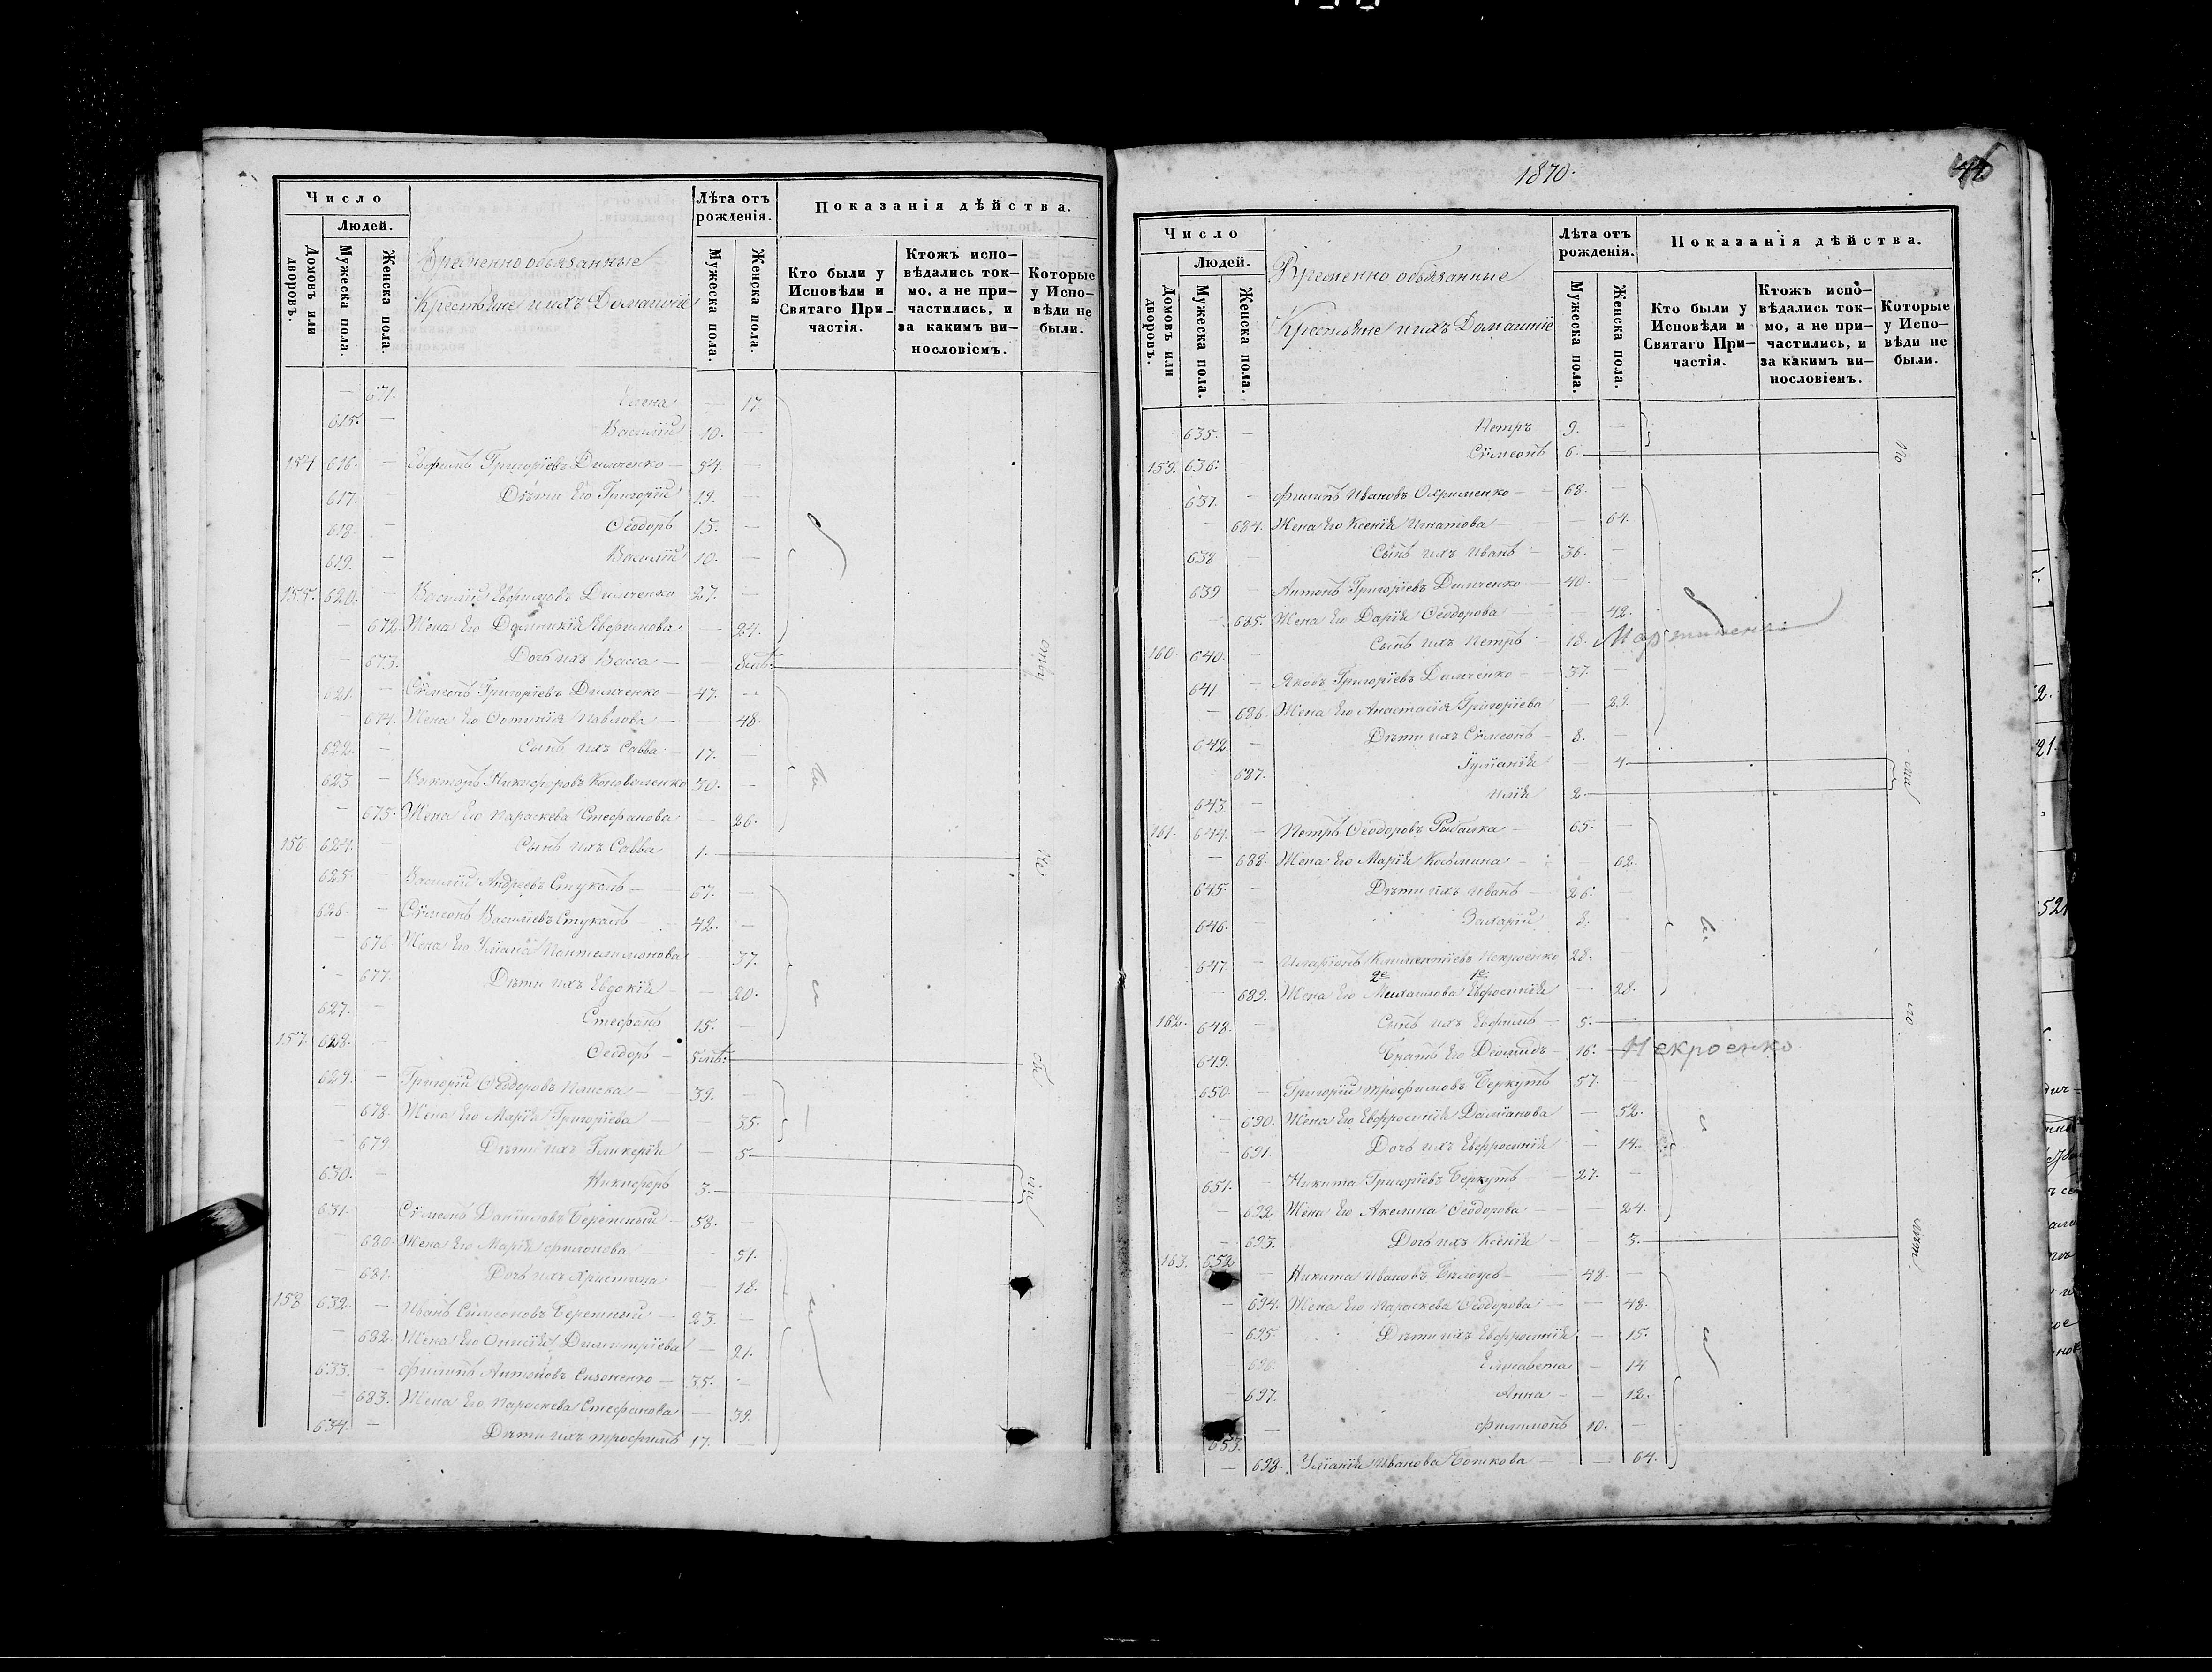 Число
Людей.
Домовъ или дворовъ.
Мужеска пола.
Женска пола.
Временно обязанные
Крестьяне и ихъ Домашніе
Лѣта отъ рожденія.
Мужеска пола.
Женска пола.
Показанія дѣйства.
Кто были у Исповѣди и Святаго Причастія.
Ктожъ исповѣдались токмо, а не причастились, и за какимъ винословіемъ.
Которые у Исповѣди не были.
— 671. Елена — 17.
615. — Василій 10. —
154 616. — Евфимъ Григоріевъ Димченко — 54. —
617. — Дѣти Его Григорій 19. —
618. — Ѳеодоръ 13. —
619. — Василій 10. —
155. 620. — Василій Евфимовъ Димченко 27. —
— 672. Жена Его Домникія Евфимова — 24.
— 673. Дочь ихъ Васса —
621. — Сѵмеонъ Григоріевъ Димченко — 47. —
— 674. Жена Его Павлова — — 48.
622. — Сынъ ихъ Савва — 17. —
623 — Викторъ Никифоровъ Коноваленко 30. —
— 675. Жена Его Параскева Стефанова — 26.
156 624. — Сынъ ихъ Савва 1. —
625. — Василій Андреевъ Стукалъ — 67. —
626. — Сѵмеонъ Василіевъ Стукалъ — 42. —
— 676. Жена Его Уліана Пантелимонова — 37.
— 677. Дѣти ихъ Евдокія — — 20.
627. — Стефанъ 15. —
157. 628. — Ѳеодоръ —
629. — Григорій Ѳеодоровъ — 39. —
— 678. Жена Его Марія Григоріева — — 35.
— 679 Дѣти ихъ Гликерія — 5.
630. — Никифоръ 3. —
631. — Сѵмеонъ Даніиловъ Бережный — 58. —
— 680. Жена Его Марія Филонова — 51.
— 681. Дочь ихъ Христина — 18.
158 632. — Иванъ Сѵмеоновъ Бережный — 23. —
— 682. Жена Его Онисія Димитріева — 21.
633. — Филипъ Антоновъ — 35. —
— 683. Жена Его Параскева Стефанова — 39.
634. — Дѣти ихъ Трофимъ 17. —
1870.
Число
Людей.
Домовъ или дворовъ.
Мужеска пола.
Женска пола.
Временно обязанные
Крестьяне и ихъ Домашніе
Лѣта отъ рожденія.
Мужеска пола.
Женска пола.
Показанія дѣйства.
Кто были у Исповѣди и Святаго Причастія.
Ктожъ исповѣдались токмо, а не причастились, и за какимъ винословіемъ.
Которые у Исповѣди не были.
635. — Петръ 9. —
159. 636. — Сѵмеонъ 6. —
637. — Филипъ Ивановъ Охрименко — 68. —
— 684. Жена Его Ксенія Игнатова — — 64.
638 — Сынъ ихъ Иванъ — 36. —
639 — Антонъ Григоріевъ Димченко — 40. —
— 685. Жена Его Дарія Ѳеодорова — 42.
160. 640. — Сынъ ихъ Петръ — 18.
641. — Яковъ Григоріевъ Димченко — 37. —
— 686. Жена Его Анастасія Григоріева — 29.
642. — Дѣти ихъ Сѵмеонъ — 8. —
— 687. Іуліанія — 4.
643. — Илія 2. —
161. 644. — Петръ Ѳеодоровъ Рыбалка — 65. —
— 688. Жена Его Марія Косьмина — — 62.
645. — Дѣти ихъ Иванъ — 26. —
646. — Захарій 8. —
647 — Иларіонъ Климентіевъ Некроенко 28. —
2е 1е
— 689. Жена Его Михаилова Евфросинія — 28.
162. 648. — Сынъ ихъ Евфимъ — 5. —
649. — Братъ Его Діомидъ — 16. — Некроенко
650. — Григорій Трофимовъ Беркутъ 57. —
— 690. Жена Его Евфросинія Даміанова — 52.
— 691. Дочь ихъ Евфросинія — 14.
651. — Никита Григоріевъ Беркутъ — 27. —
— 692. Жена Его Акелина Ѳеодорова — — 24.
— 693. Дочь ихъ Ксенія — — 3.
163. 652 — Никита Ивановъ Билоусъ — 48. —
— 694. Жена Его Параскева Ѳеодорова — — 48.
— 695. Дѣти ихъ Евфросинія — 15.
— 696. Елисавета — 14.
— 697. Анна — — 12.
653. — Филимонъ 10. —
— 698. Уліанія Иванова — — 64.